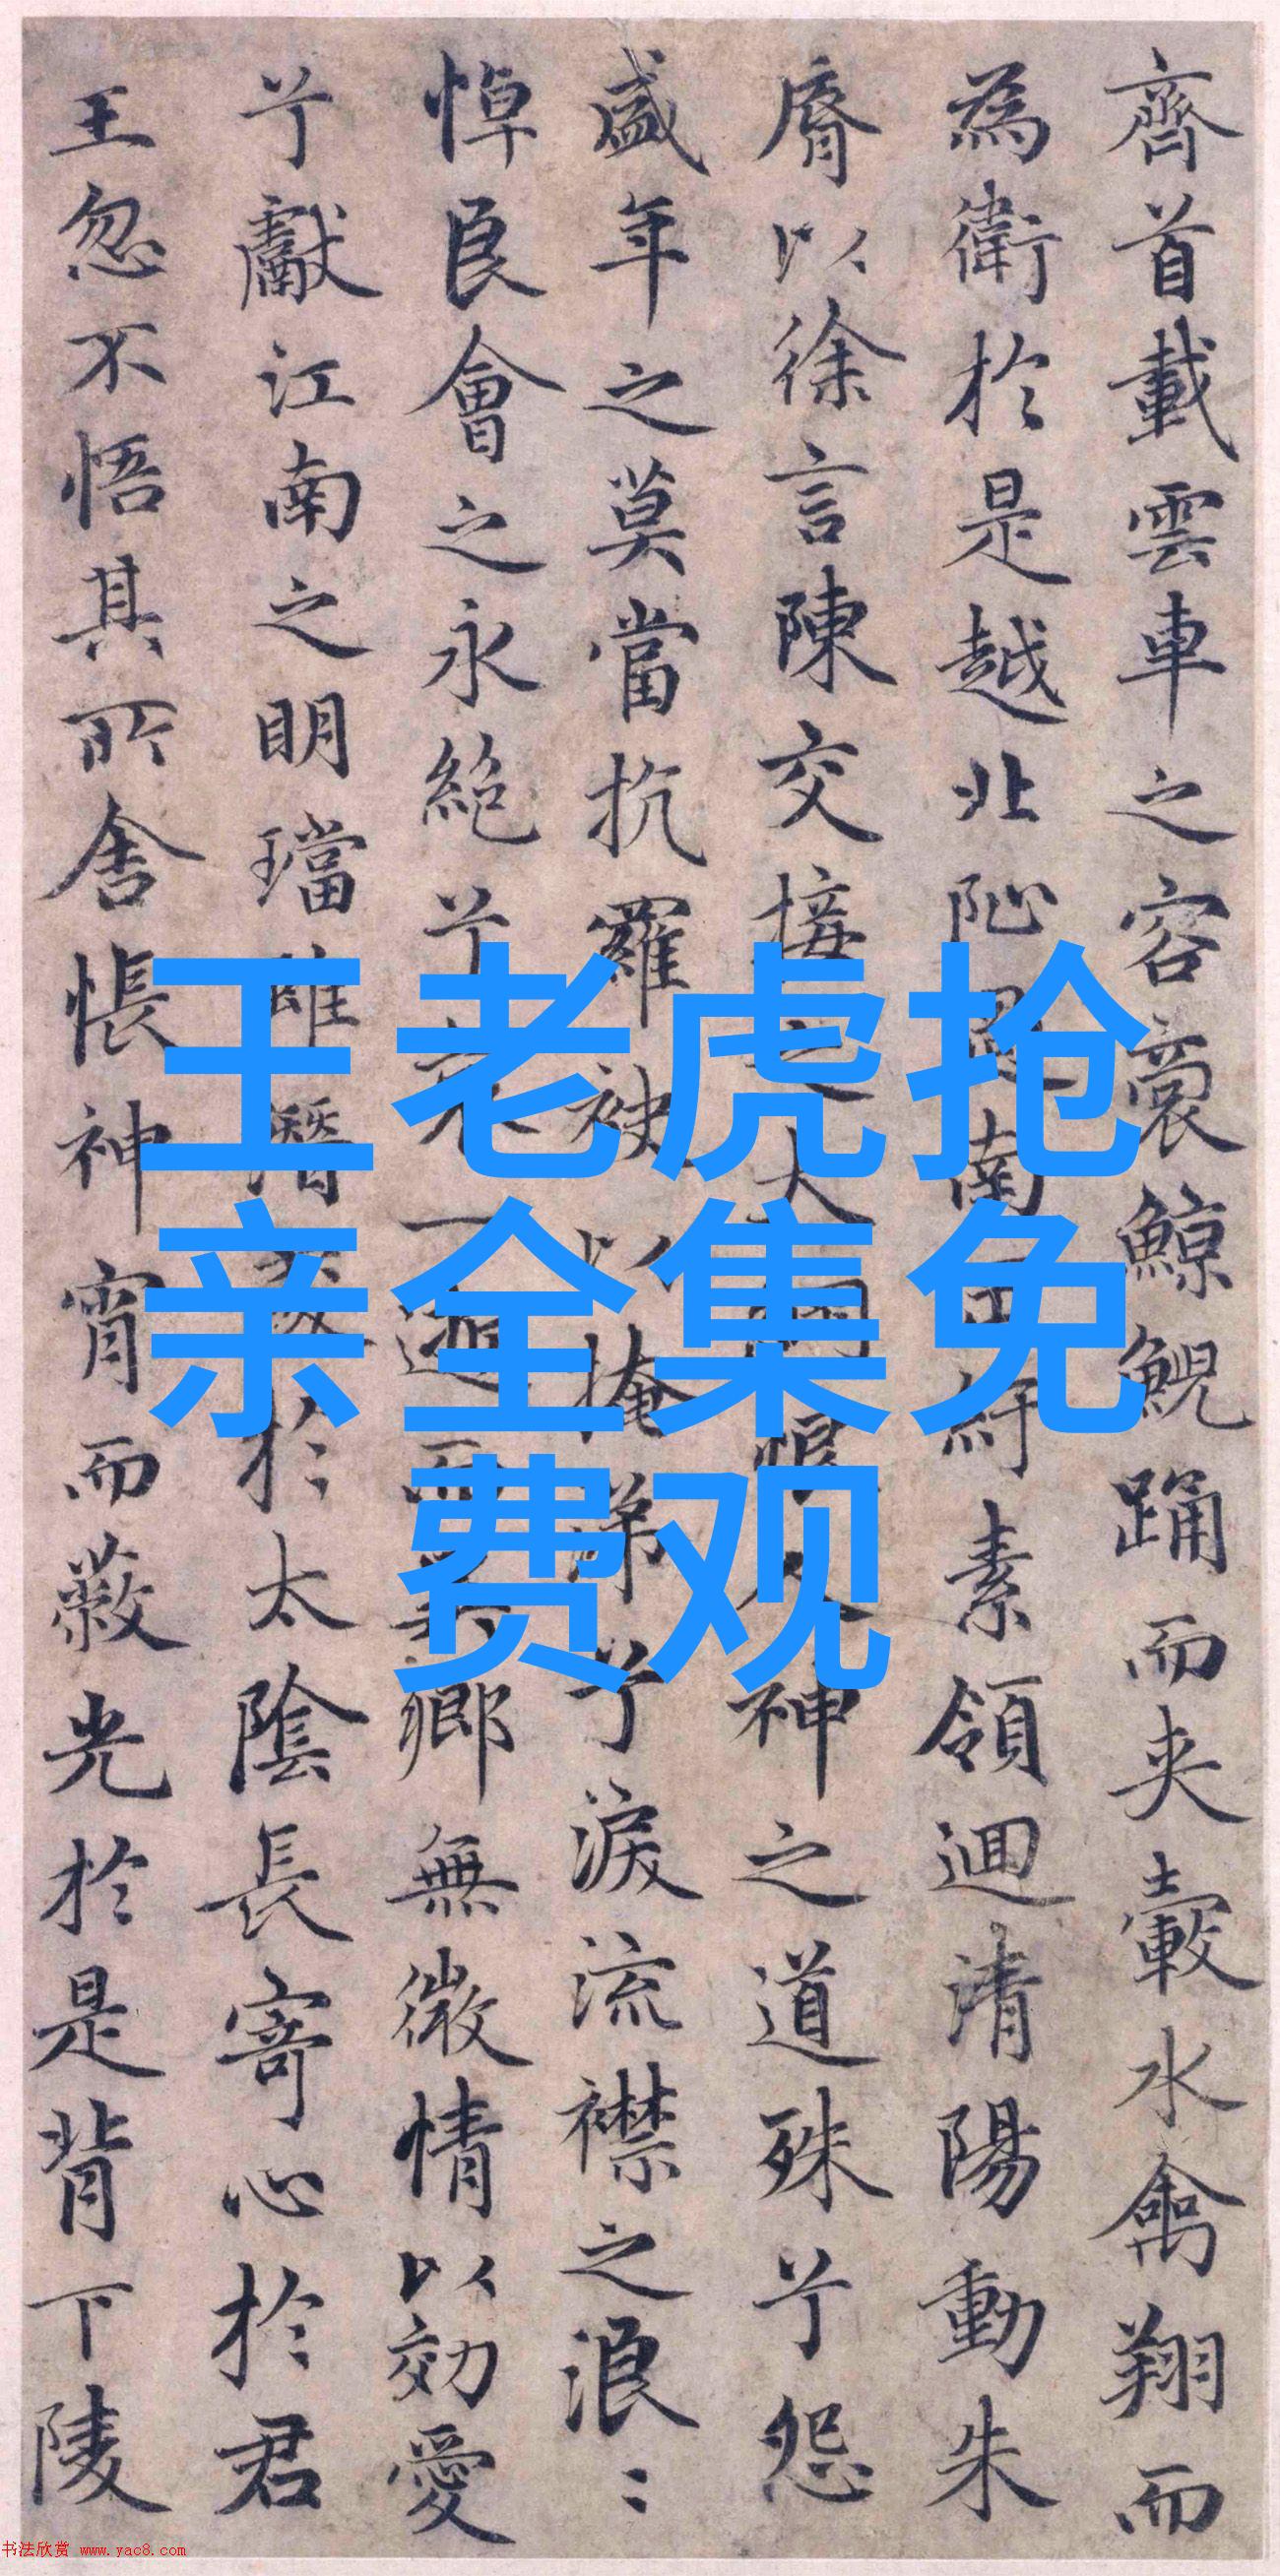 齊首載雲車之容裔鯨鯢踊而夾轂水禽翔而
為衛於是越北阯過南岡紆素領迴清陽動朱
脣以徐言陳交接之大綱恨人神之道殊兮怨
盛年之莫當抗羅袂以掩涕兮淚流襟之浪〻
悼良會之永絕兮哀一逝而異鄉無微情以効愛
兮獻江南之明璫雖潛處於太陰長寄心於君
王忽不悟其所舍悵神宵而蔽光於是背下陵
王老虎抢
亲全集免
费观
书法欣赏 www.yac8.com